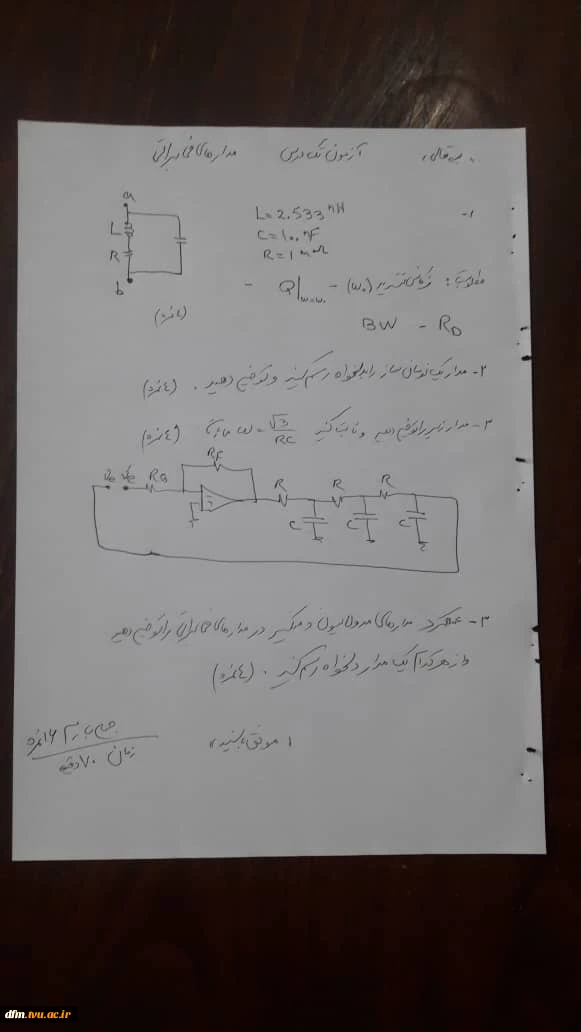 آزمون تک درس مدارهای مخابراتی
a
L
R
b
۱-
L=2.533 nH
C=100 nF
R=1 mΩ
مطلوبست: فرکانس تشدید (ω₀) - Q|ω=ω₀ -
BW - RD
(۴ نمره)
۲- مدار یک نوسان ساز را بدلخواه رسم کنید و توضیح دهید. (۴ نمره)
۳- مدار زیر را توضیح دهید و ثابت کنید ω = √3/RC (۴ نمره)
RF
RG
R
R
R
C
C
C
۳- عملکرد مدارهای مدولاسیون و میکسر در مدارهای مخابراتی را توضیح دهید
و از هر کدام یک مدار دلخواه رسم کنید. (۴ نمره)
موفق باشید
جمع بارم ۱۶ نمره
زمان ۷۰ دقیقه
dfm.tvu.ac.ir